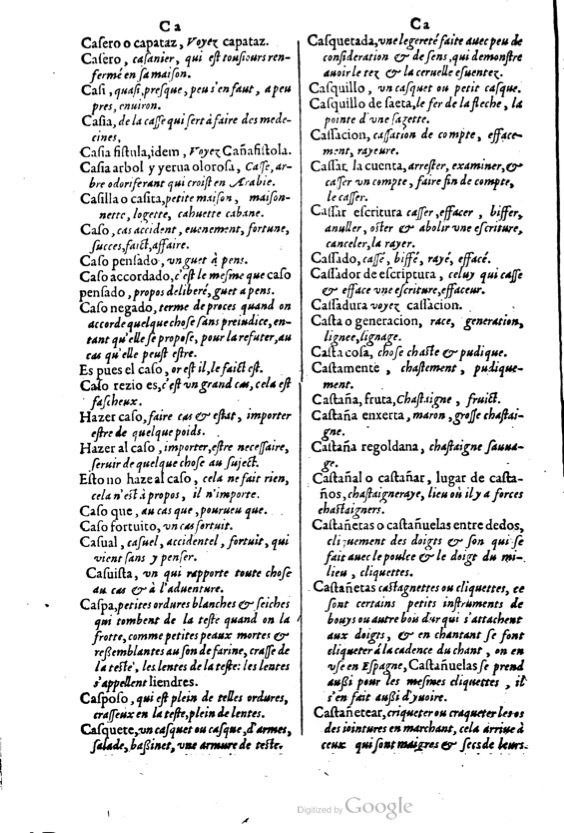 Ca
Casero o capataz, Voyez capataz.
Casero, casanier, qui est tousiours ren-
fermé en sa maison.
Casi, quasi, presque, peu s'en faut, a peu
pres, enuiron.
Casia, de la casse qui sert à faire des mede-
cines,
Casia fistula, idem, Voyez Cañafistola.
Casia arbol y yerua olorosa, Casse, ar-
bre odoriferant qui croist en Arabie.
Casilla o casita, petite maison, maison-
nette, logette, cahuette cabane.
Caso, cas accident, euenement, fortune,
succes, faict, affaire.
Caso pensado, un guet à pens.
Caso acordado, c'est le mesme que caso
pensado, propos deliberé, guet a pens.
Caso negado, terme de proces quand on
accorde quelque chose sans preiudice, en-
tant qu'elle se propose, pour la refuter, au
cas qu'elle peust estre.
Es pues el caso, or est il, le faict est.
Caso rezio es, c'est un grand cas, cela est
fascheux.
Hazer caso, faire cas & estat, importer
estre de quelque poids.
Hazer al caso, importer, estre necessaire,
seruir de quelque chose au suject.
Esto no haze al caso, cela ne fait rien,
cela n'est à propos, il n'importe.
Caso que, au cas que, pourueu que.
Caso fortuito, un cas fortuit.
Casual, casuel, accidentel, fortuit, qui
vient sans y penser.
Casuista, un qui rapporte toute chose
au cas & à l'aduenture.
Caspa, petites ordures blanches & seiches
qui tombent de la teste quand on la
frotte, comme petites peaux mortes &
reßemblantes au son de farine, crasse de
la teste, les lentes de la teste: les lentes
s'appellent liendres.
Casposo, qui est plein de telles ordures,
crasseux en la teste, plein de lentes.
Casquete, un casquet ou casque, d'armes,
salade, baßinet, une armure de teste.
Ca
Casquetada, une legereté faite auec peu de
consideration & de sens, qui demonstre
auoir le tez & la ceruelle esuentez.
Casquillo, un casquet ou petit casque.
Casquillo de saeta, le fer de la fleche, la
pointe d'une sagette.
Cassacion, cassation de compte, efface-
ment, rayeure.
Cassar la cuenta, arrester, examiner, &
casser un compte, faire fin de compte,
le casser.
Cassar escritura casser, effacer, biffer,
anuller, oster & abolir une escriture,
canceler, la rayer.
Cassado, cassé, biffé, rayé, effacé.
Cassador de escriptura, celuy qui casse
& efface une escriture, effaceur.
Cassadura voyez cassacion.
Casta o generacion, race, generation,
lignee, lignage.
Casta cosa, chose chaste & pudique.
Castamente, chastement, pudique-
ment.
Castaña, fruta, Chastaigne, fruict.
Castaña enxerta, maron, grosse chastai-
gne.
Castaña regoldana, chastaigne sauua-
ge.
Castañal o castañar, lugar de casta-
ños, chastaigneraye, lieu où il y a forces
chastaigners.
Castañetas o castañuelas entre dedos,
cliquement des doigts & son qui se
fait auec le poulce & le doigt du mi-
lieu, cliquettes.
Castañetas castagnettes ou cliquettes, ce
sont certains petits instruments de
bouys ou autre bois dur qui s'attachent
aux doigts, & en chantant se font
cliqueter à la cadence du chant, on en
use en Espagne, Castañuelas se prend
außi pour les mesmes cliquettes, il
s'en fait außi d'yuoire.
Castañetear, criqueter ou craqueter les os
des iointures en marchant, cela arriue à
ceux qui sont maigres & secs de leurs.
Digitized by Google